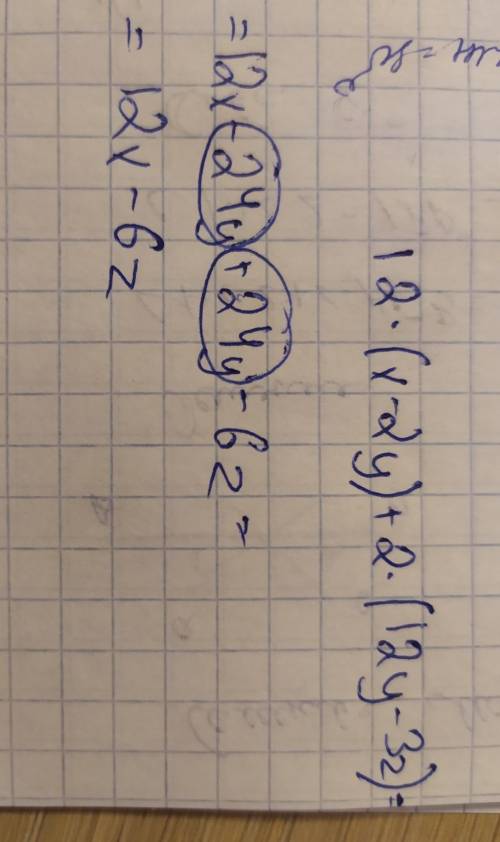 12·(x-2y)+2·(12y-3z)=
=12x-24y+24y-6z=
=12x-6z